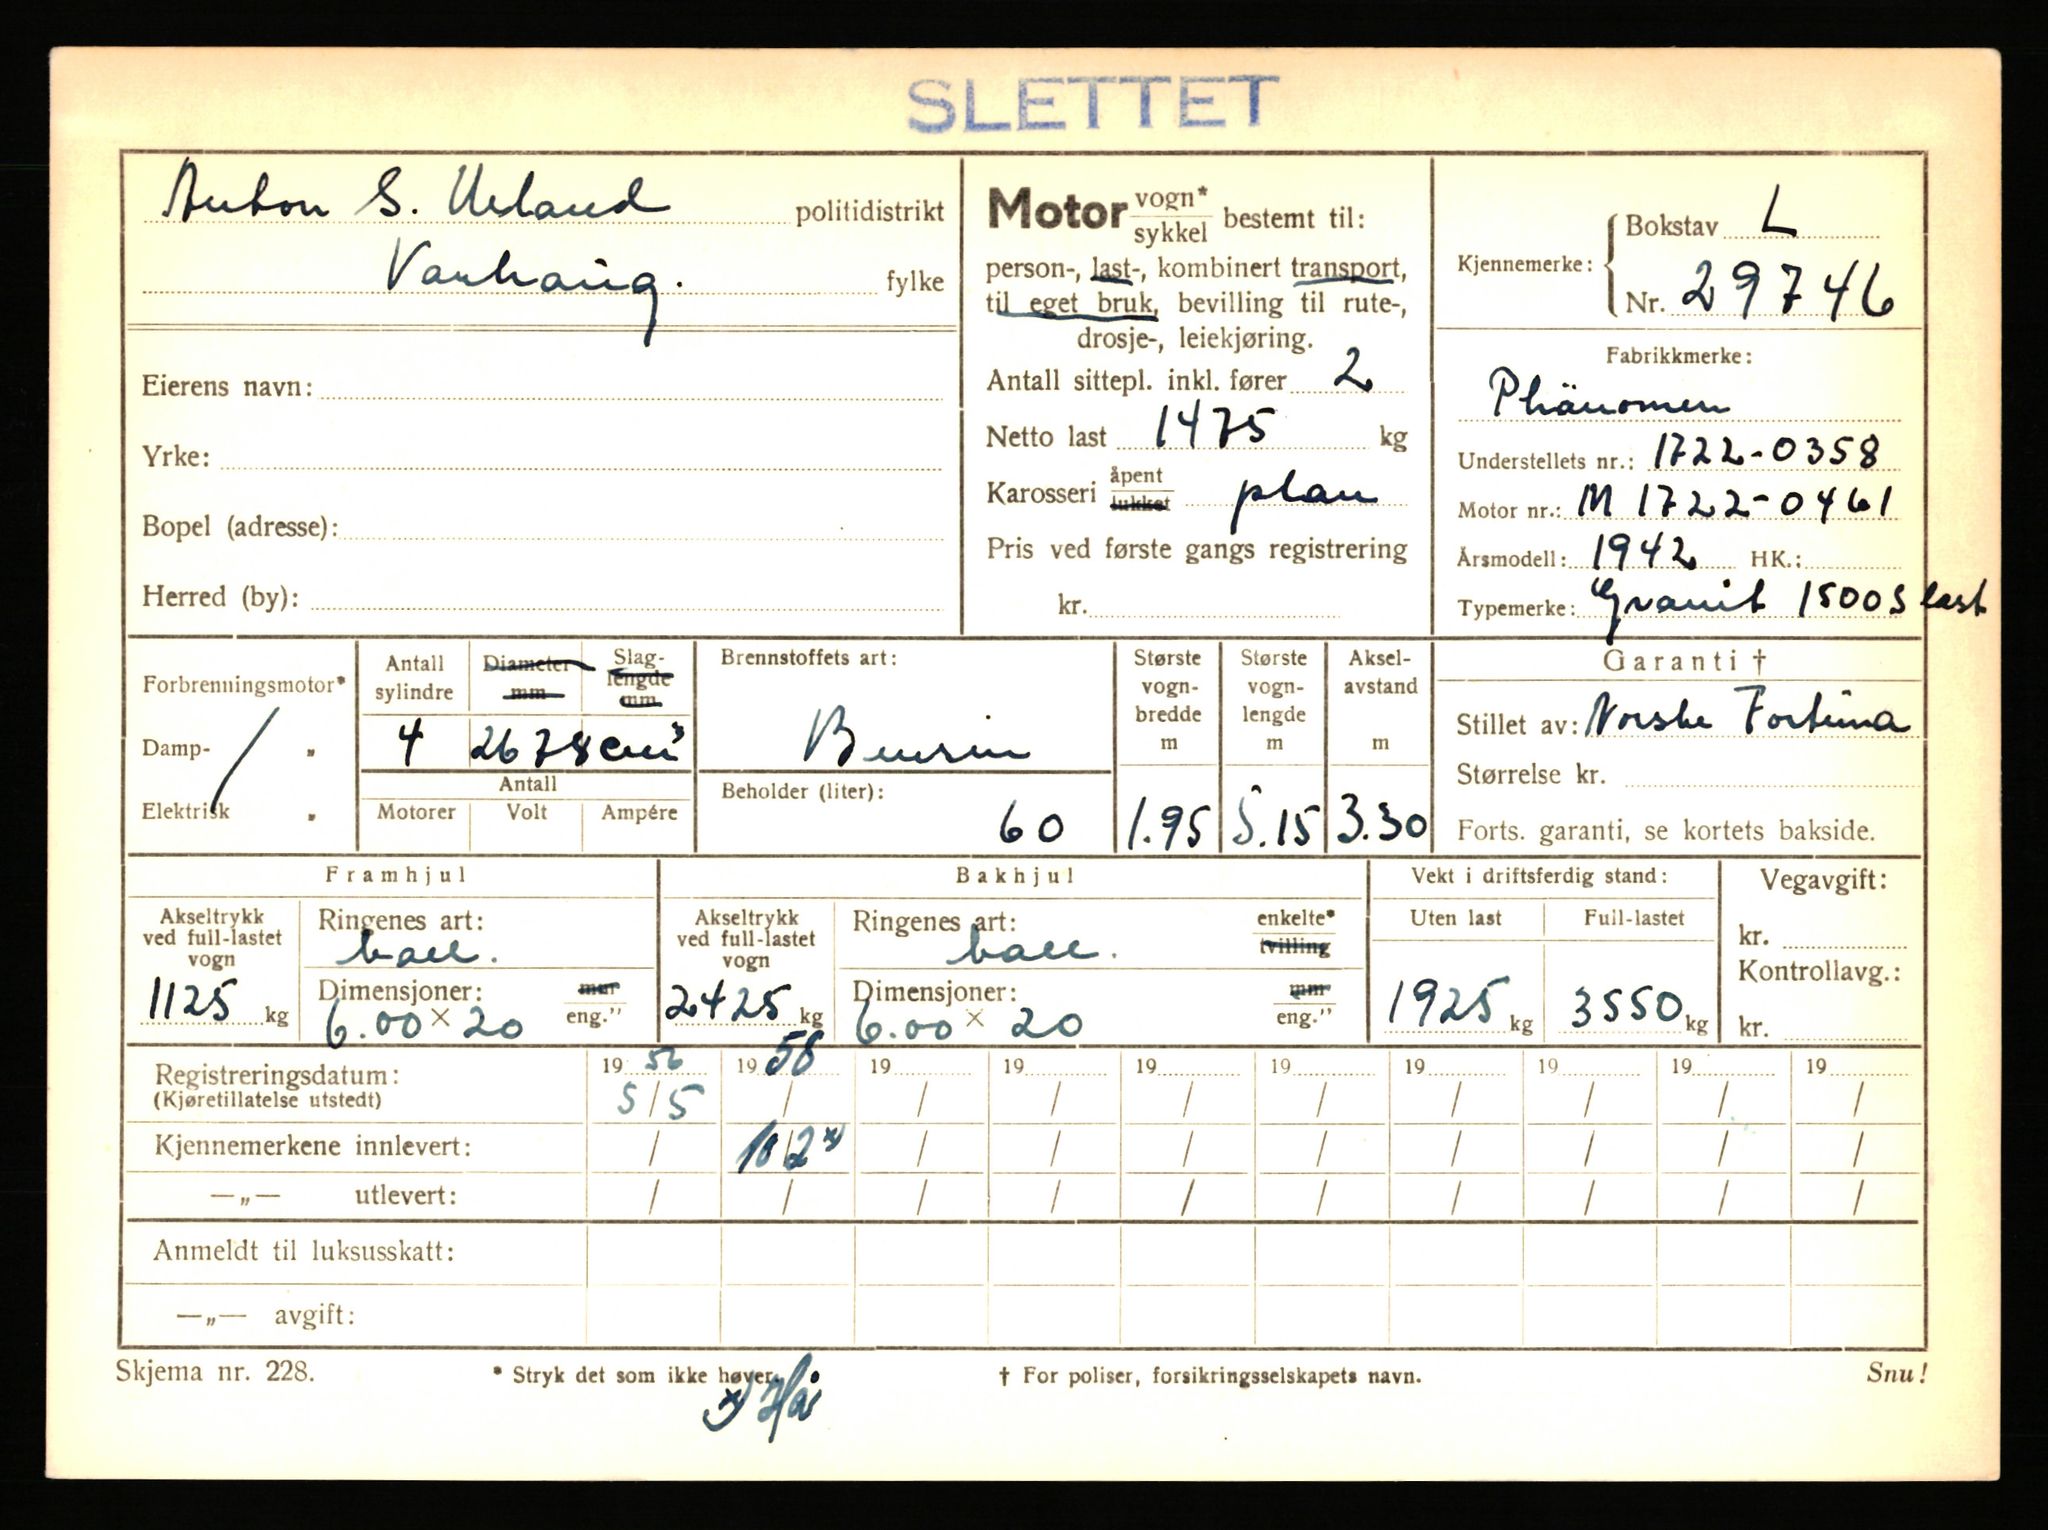 SLETTET
Anton S. Ueland politidistrikt
Varhaug. fylke
Eierens navn:
Yrke:
Bopel (adresse):
Herred (by):
Motor vogn* / sykkel bestemt til:
person-, last-, kombinert transport,
til eget bruk, bevilling til rute-,
drosje-, leiekjøring.
Antall sittepl. inkl. fører 2
Netto last 1475 kg
Karosseri åpent / lukket plan
Pris ved første gangs registrering
kr.
Kjennemerke: Bokstav L
Nr. 29746
Fabrikkmerke:
Phänomen
Understellets nr.: 1722-0358
Motor nr.: M 1722-0461
Årsmodell: 1942 HK.:
Typemerke: Granit 1500 S last
Forbrenningsmotor*
Damp- „
Elektrisk „
Antall sylindre Diameter mm Slaglengde mm
4 2678 cm³
Antall
Motorer Volt Ampére
Brennstoffets art:
Bensin
Beholder (liter):
60
Største vogn-bredde m
1.95
Største vogn-lengde m
5.15
Aksel-avstand m
3.30
Garanti †
Stillet av: Norske Fortuna
Størrelse kr.
Forts. garanti, se kortets bakside.
Framhjul
Akseltrykk ved full-lastet vogn
1125 kg
Ringenes art:
ball.
Dimensjoner: mm
6.00 × 20 eng."
Bakhjul
Akseltrykk ved full-lastet vogn
2425 kg
Ringenes art: enkelte* / tvilling
ball.
Dimensjoner: mm
6.00 × 20 eng."
Vekt i driftsferdig stand:
Uten last Full-lastet
1925 kg 3550 kg
Vegavgift:
kr.
Kontrollavg.:
kr.
Registreringsdatum: 19 56 19 58 19 19 19 19 19 19 19 19
(Kjøretillatelse utstedt) 5/5 / / / / / / / / /
Kjennemerkene innlevert: / 10/2 x) / / / / / / / /
—„— utlevert: / / / / / / / / / /
Anmeldt til luksusskatt:
—„— avgift:
Skjema nr. 228. * Stryk det som ikke høver. † For poliser, forsikringsselskapets navn. Snu!
x) Hå